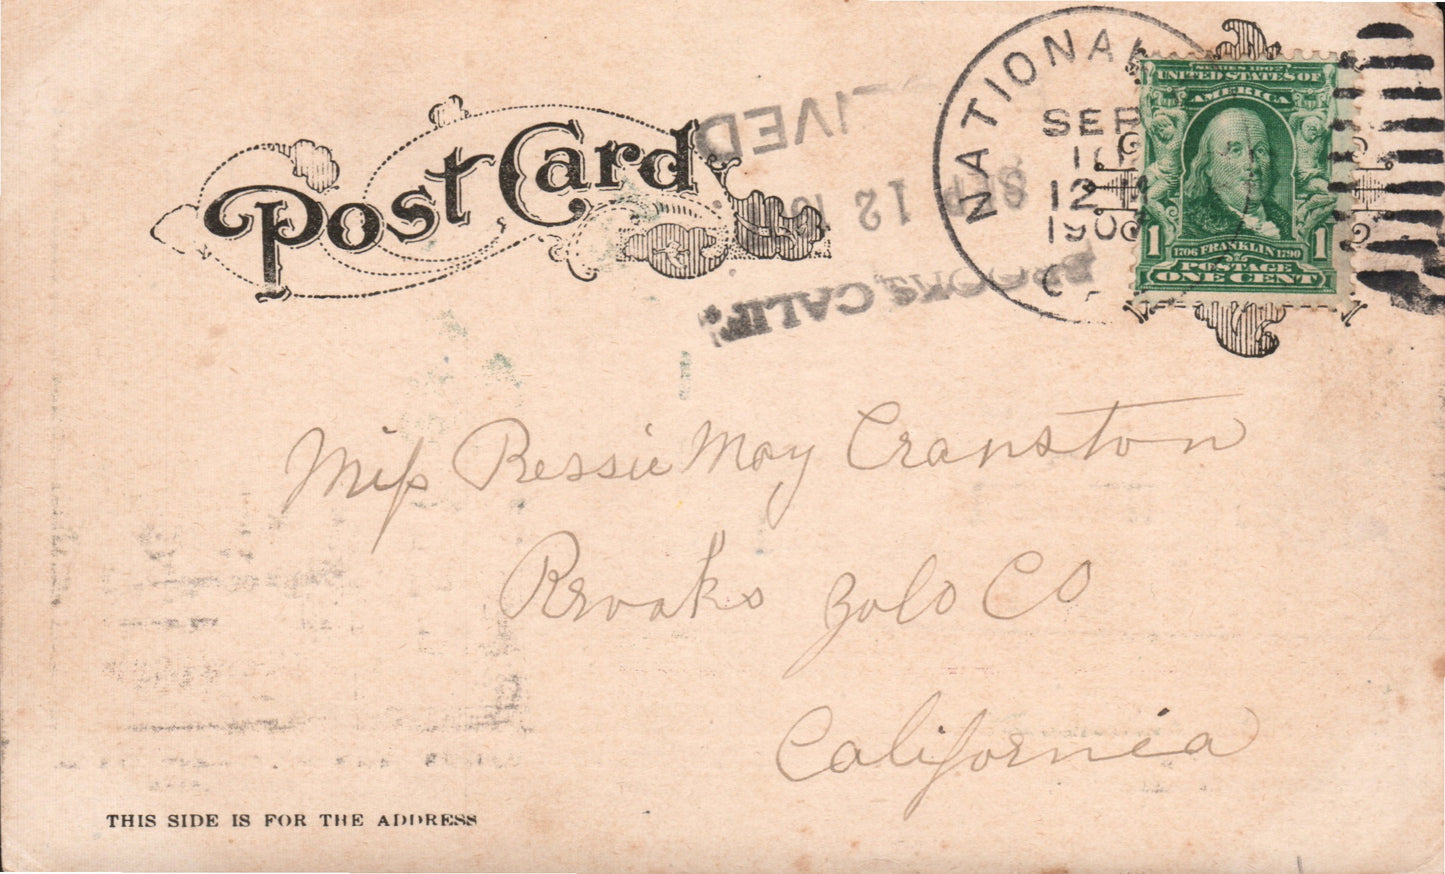 Post Card
NATIONAL
SEP
10
12 M
190
C
SERIES 1902
UNITED STATES OF
AMERICA
1 1706 FRANKLIN 1790 1
POSTAGE
ONE CENT
IVED
SEP 12 10
BROOKS, CALIF.
Miss Bessie May Cranston
Brooks Yolo Co
California
THIS SIDE IS FOR THE ADDRESS